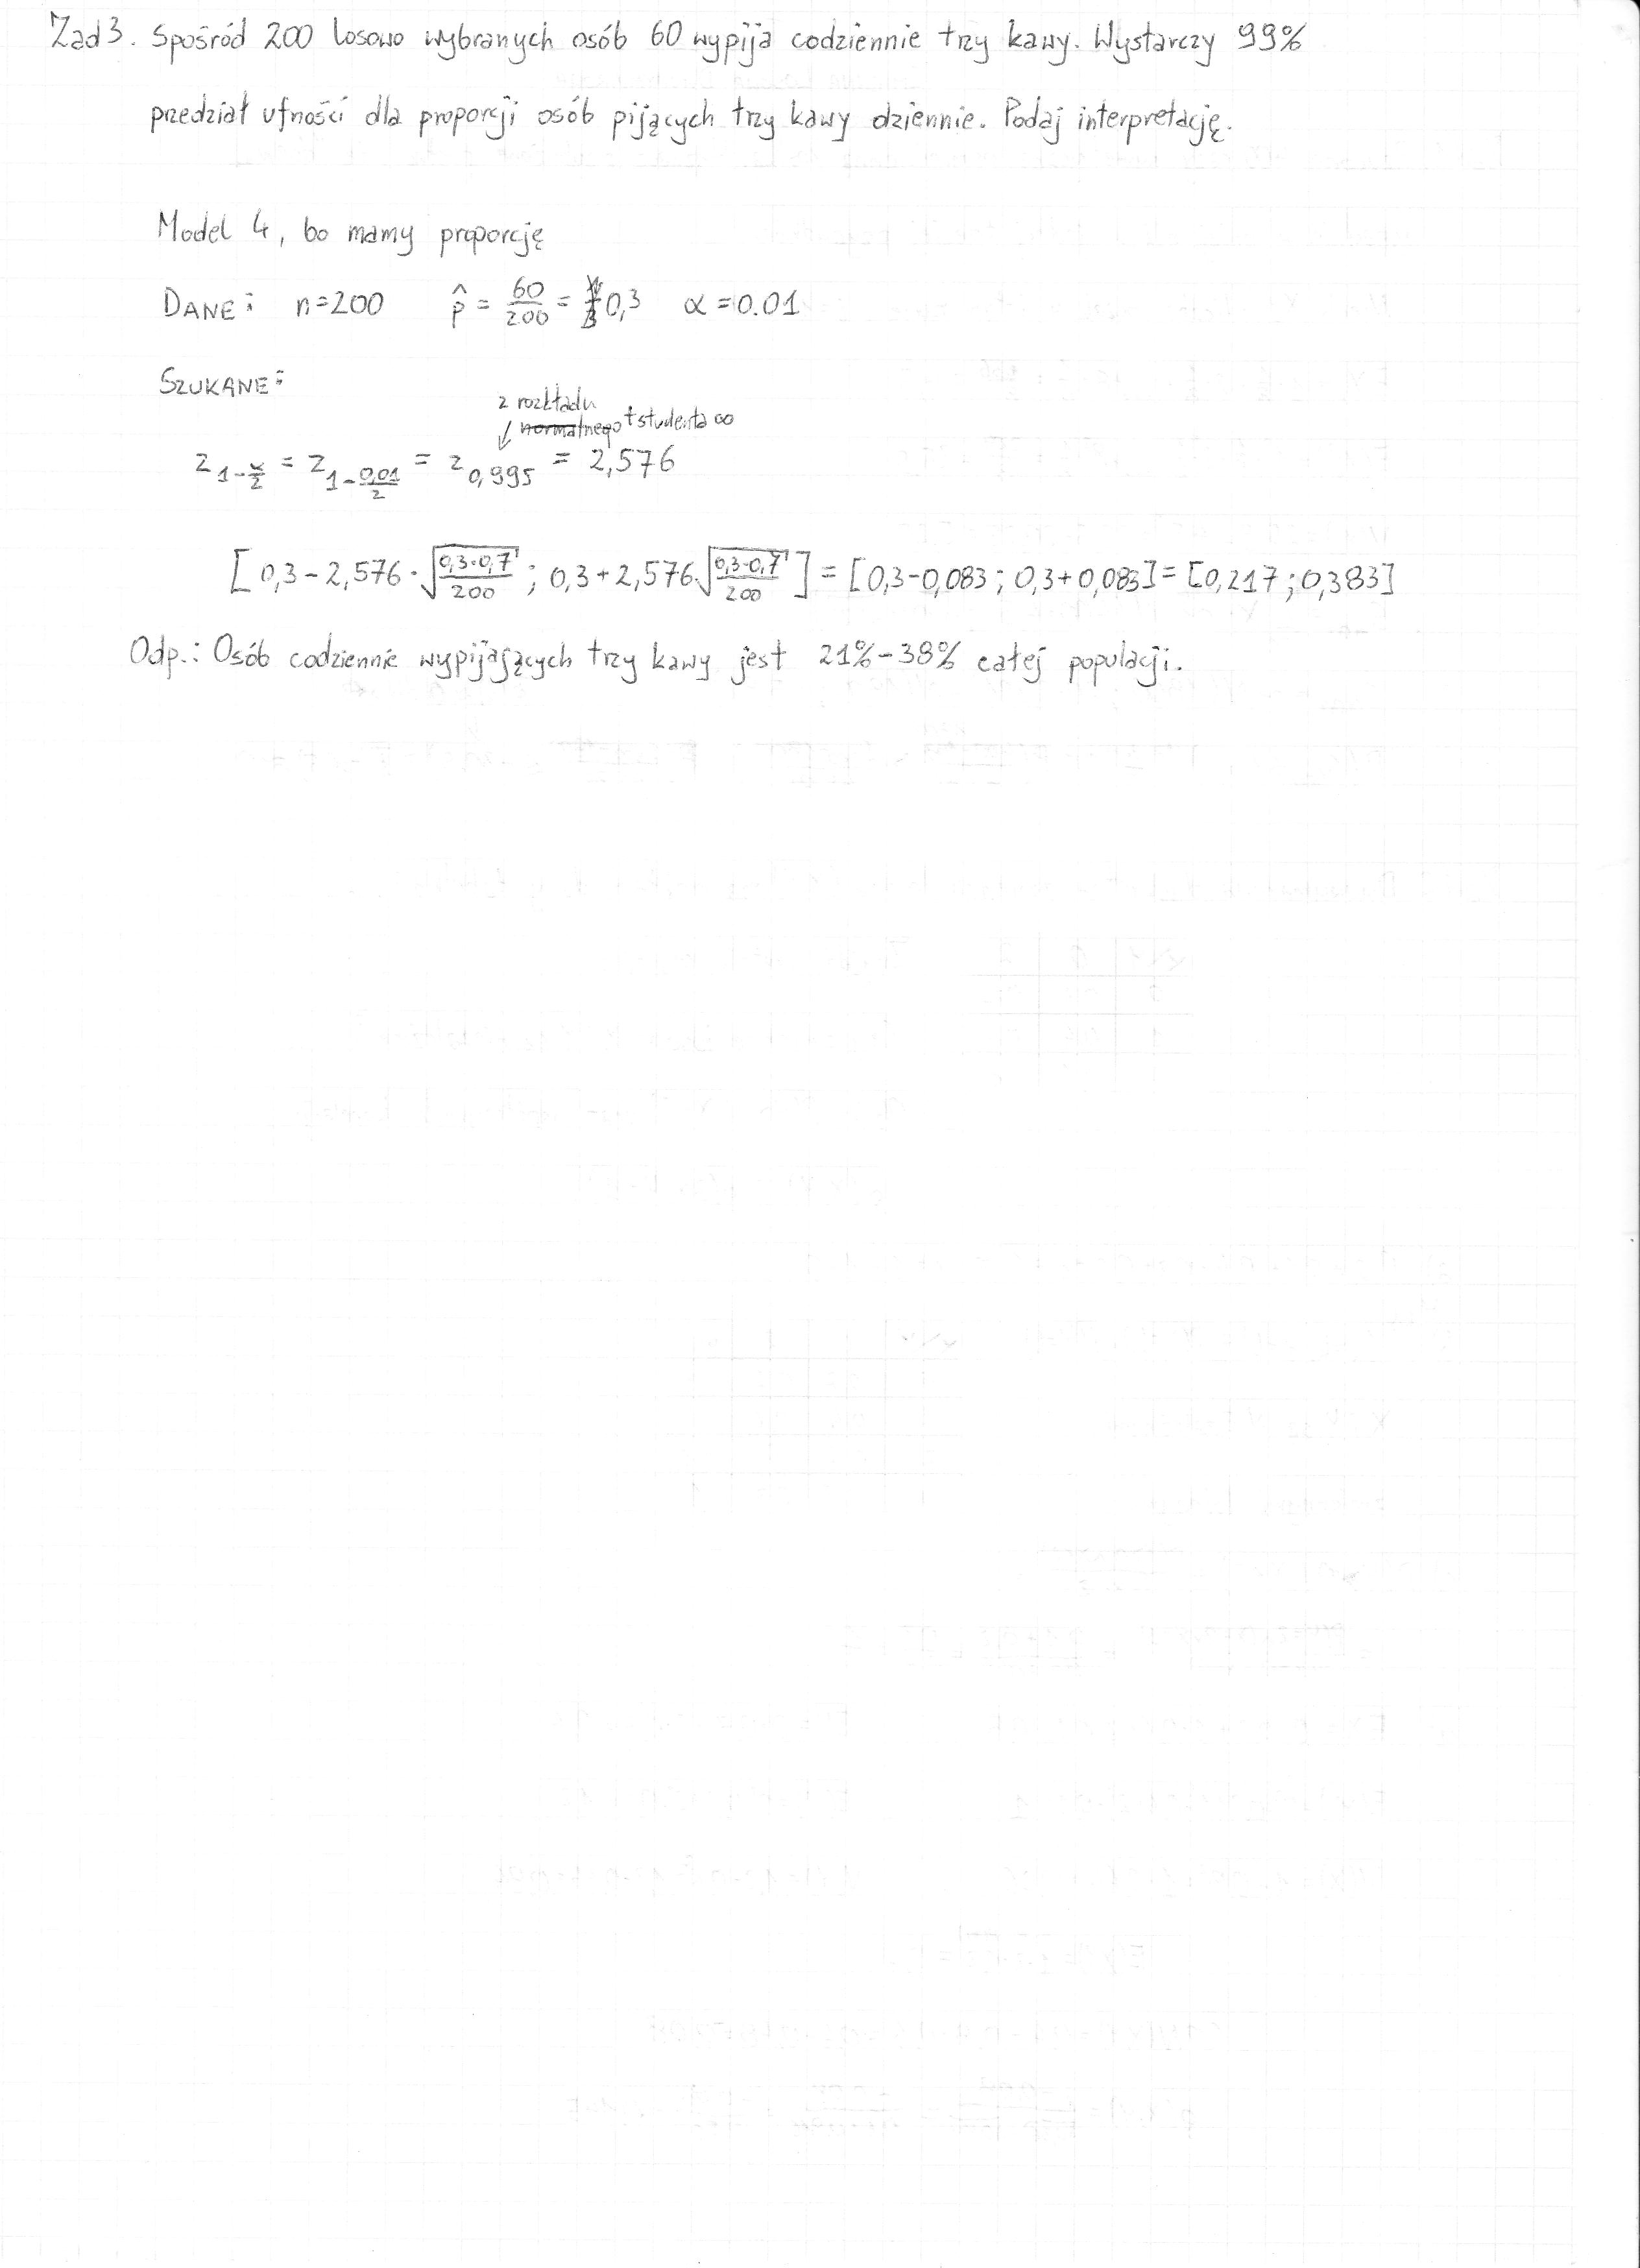 Zad 3. Spośród 200 losowo wybranych osób 60 wypija codziennie trzy kawy. Wystarczy 99%
przedział ufności dla proporcji osób pijących trzy kawy dziennie. Podaj interpretację.
Model 4, bo mamy proporcję
DANE: n=200 p̂ = 60/200 = 0,3 α = 0.01
SZUKANE:
z rozkładu
↙ normalnego t studenta ∞
z_{1-α/2} = z_{1-0,01/2} = z_{0,995} = 2,576
[0,3 - 2,576 · √(0,3·0,7/200) ; 0,3 + 2,576 √(0,3·0,7/200)] = [0,3-0,083 ; 0,3+0,083] = [0,217 ; 0,383]
Odp.: Osób codziennie wypijających trzy kawy jest 21%-38% całej populacji.